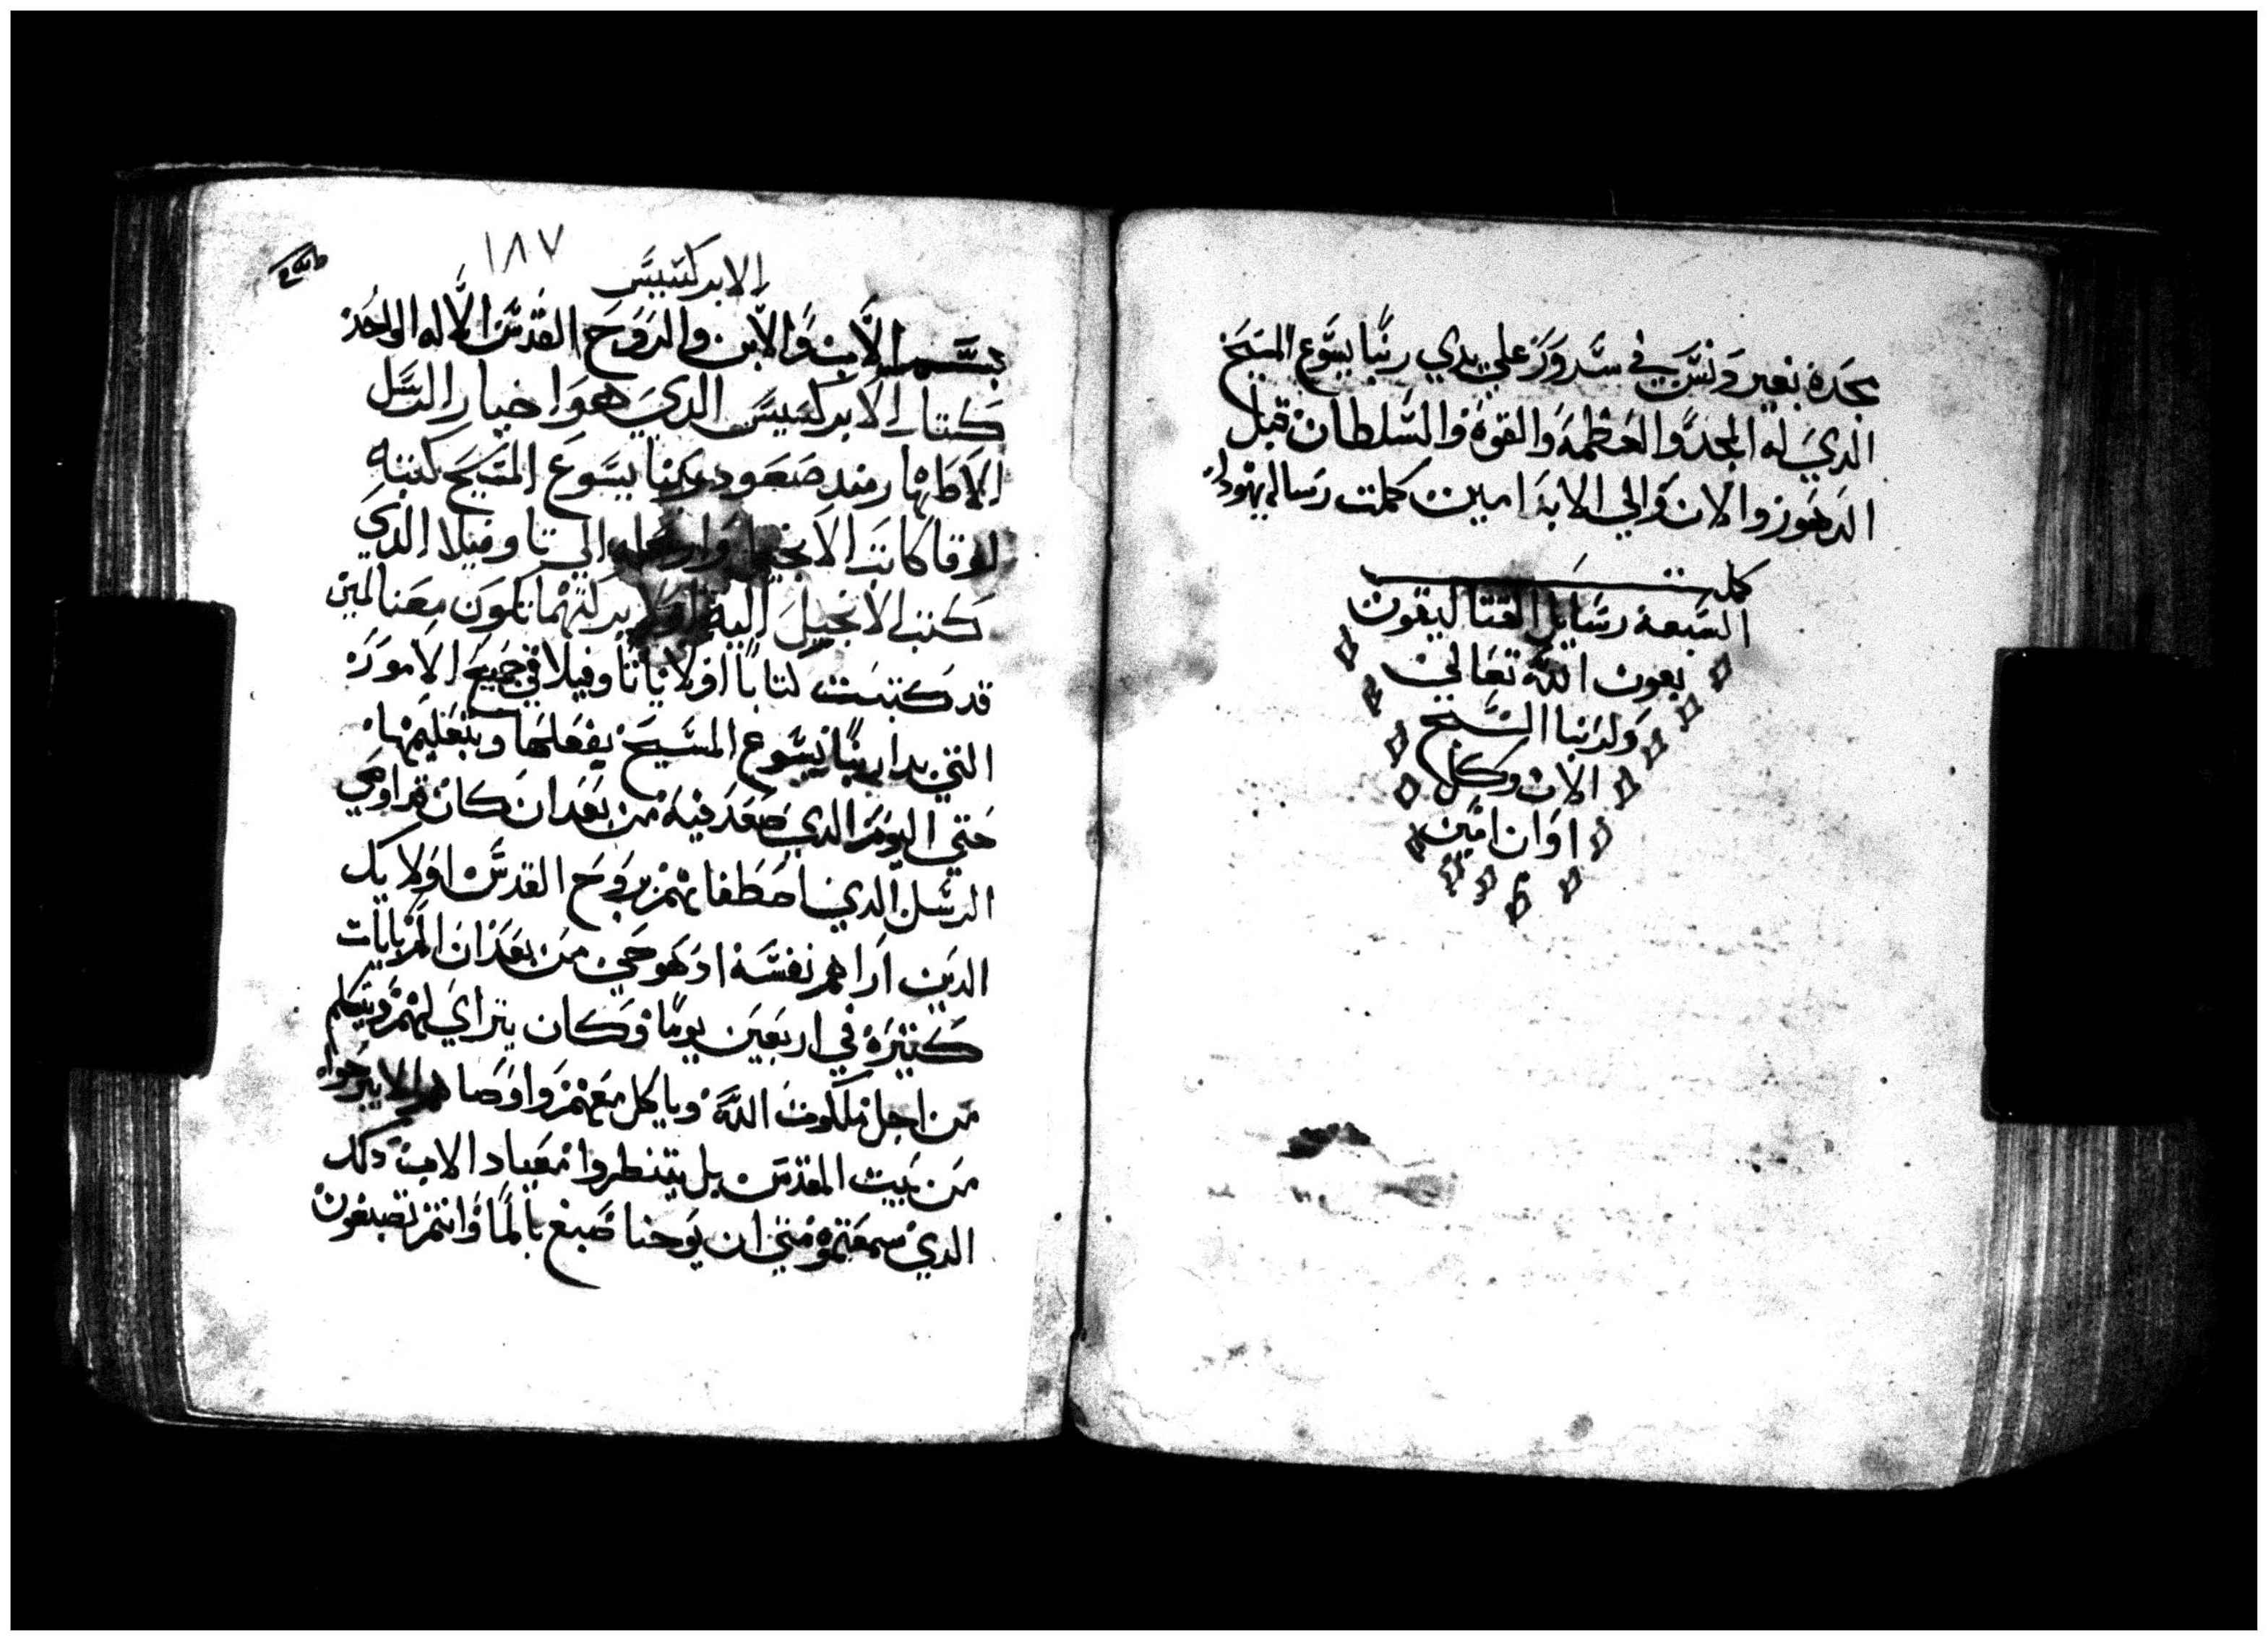 مجده بغير ونس في سرور علي يدي ربنا يسوع المسيح
الذي له المجد والعظمه والقوه والسلطان قبل
الدهور والان والي الابد امين كملت رساله يهودا
كملت
السبعه رسايل القتاليقون
بعون الله تعالي
ولربنا السبح
الان وكل
اوان امين
١٨٧
الابركسيس
بسم الاب والابن والروح القدس الاله الواحد
كتاب الابركسيس الدي هو اخبار الرسل
الاطهار مند صعود ربنا يسوع المسيح كتبه
لوقا كاتب الانجيل وارسله الي تاوفيلا الدي
كتب الانجيل اليه اولا بركتهما تكون معنا امين
قد كتبت كتابا اولا يا تاوفيلا في جميع الامور
التي بدا ربنا يسوع المسيح يفعلها وبتعليمها
حتي اليوم الدي صعد فيه من بعد ان كان قد اوصي
الرسل الدين اصطفاهم بروح القدس اوليك
الدين اراهم نفسه ادهو حي من بعد ان الم بايات
كتيره في اربعين يوما وكان يتراي لهم ويتكلم
من اجل ملكوت الله وياكل معهم واوصاهم الا يبرحوا
من بيت المقدس بل ينتطروا ميعاد الاب دلك
الدي سمعتموه مني ان يوحنا صبغ بالما وانتم تصبغون